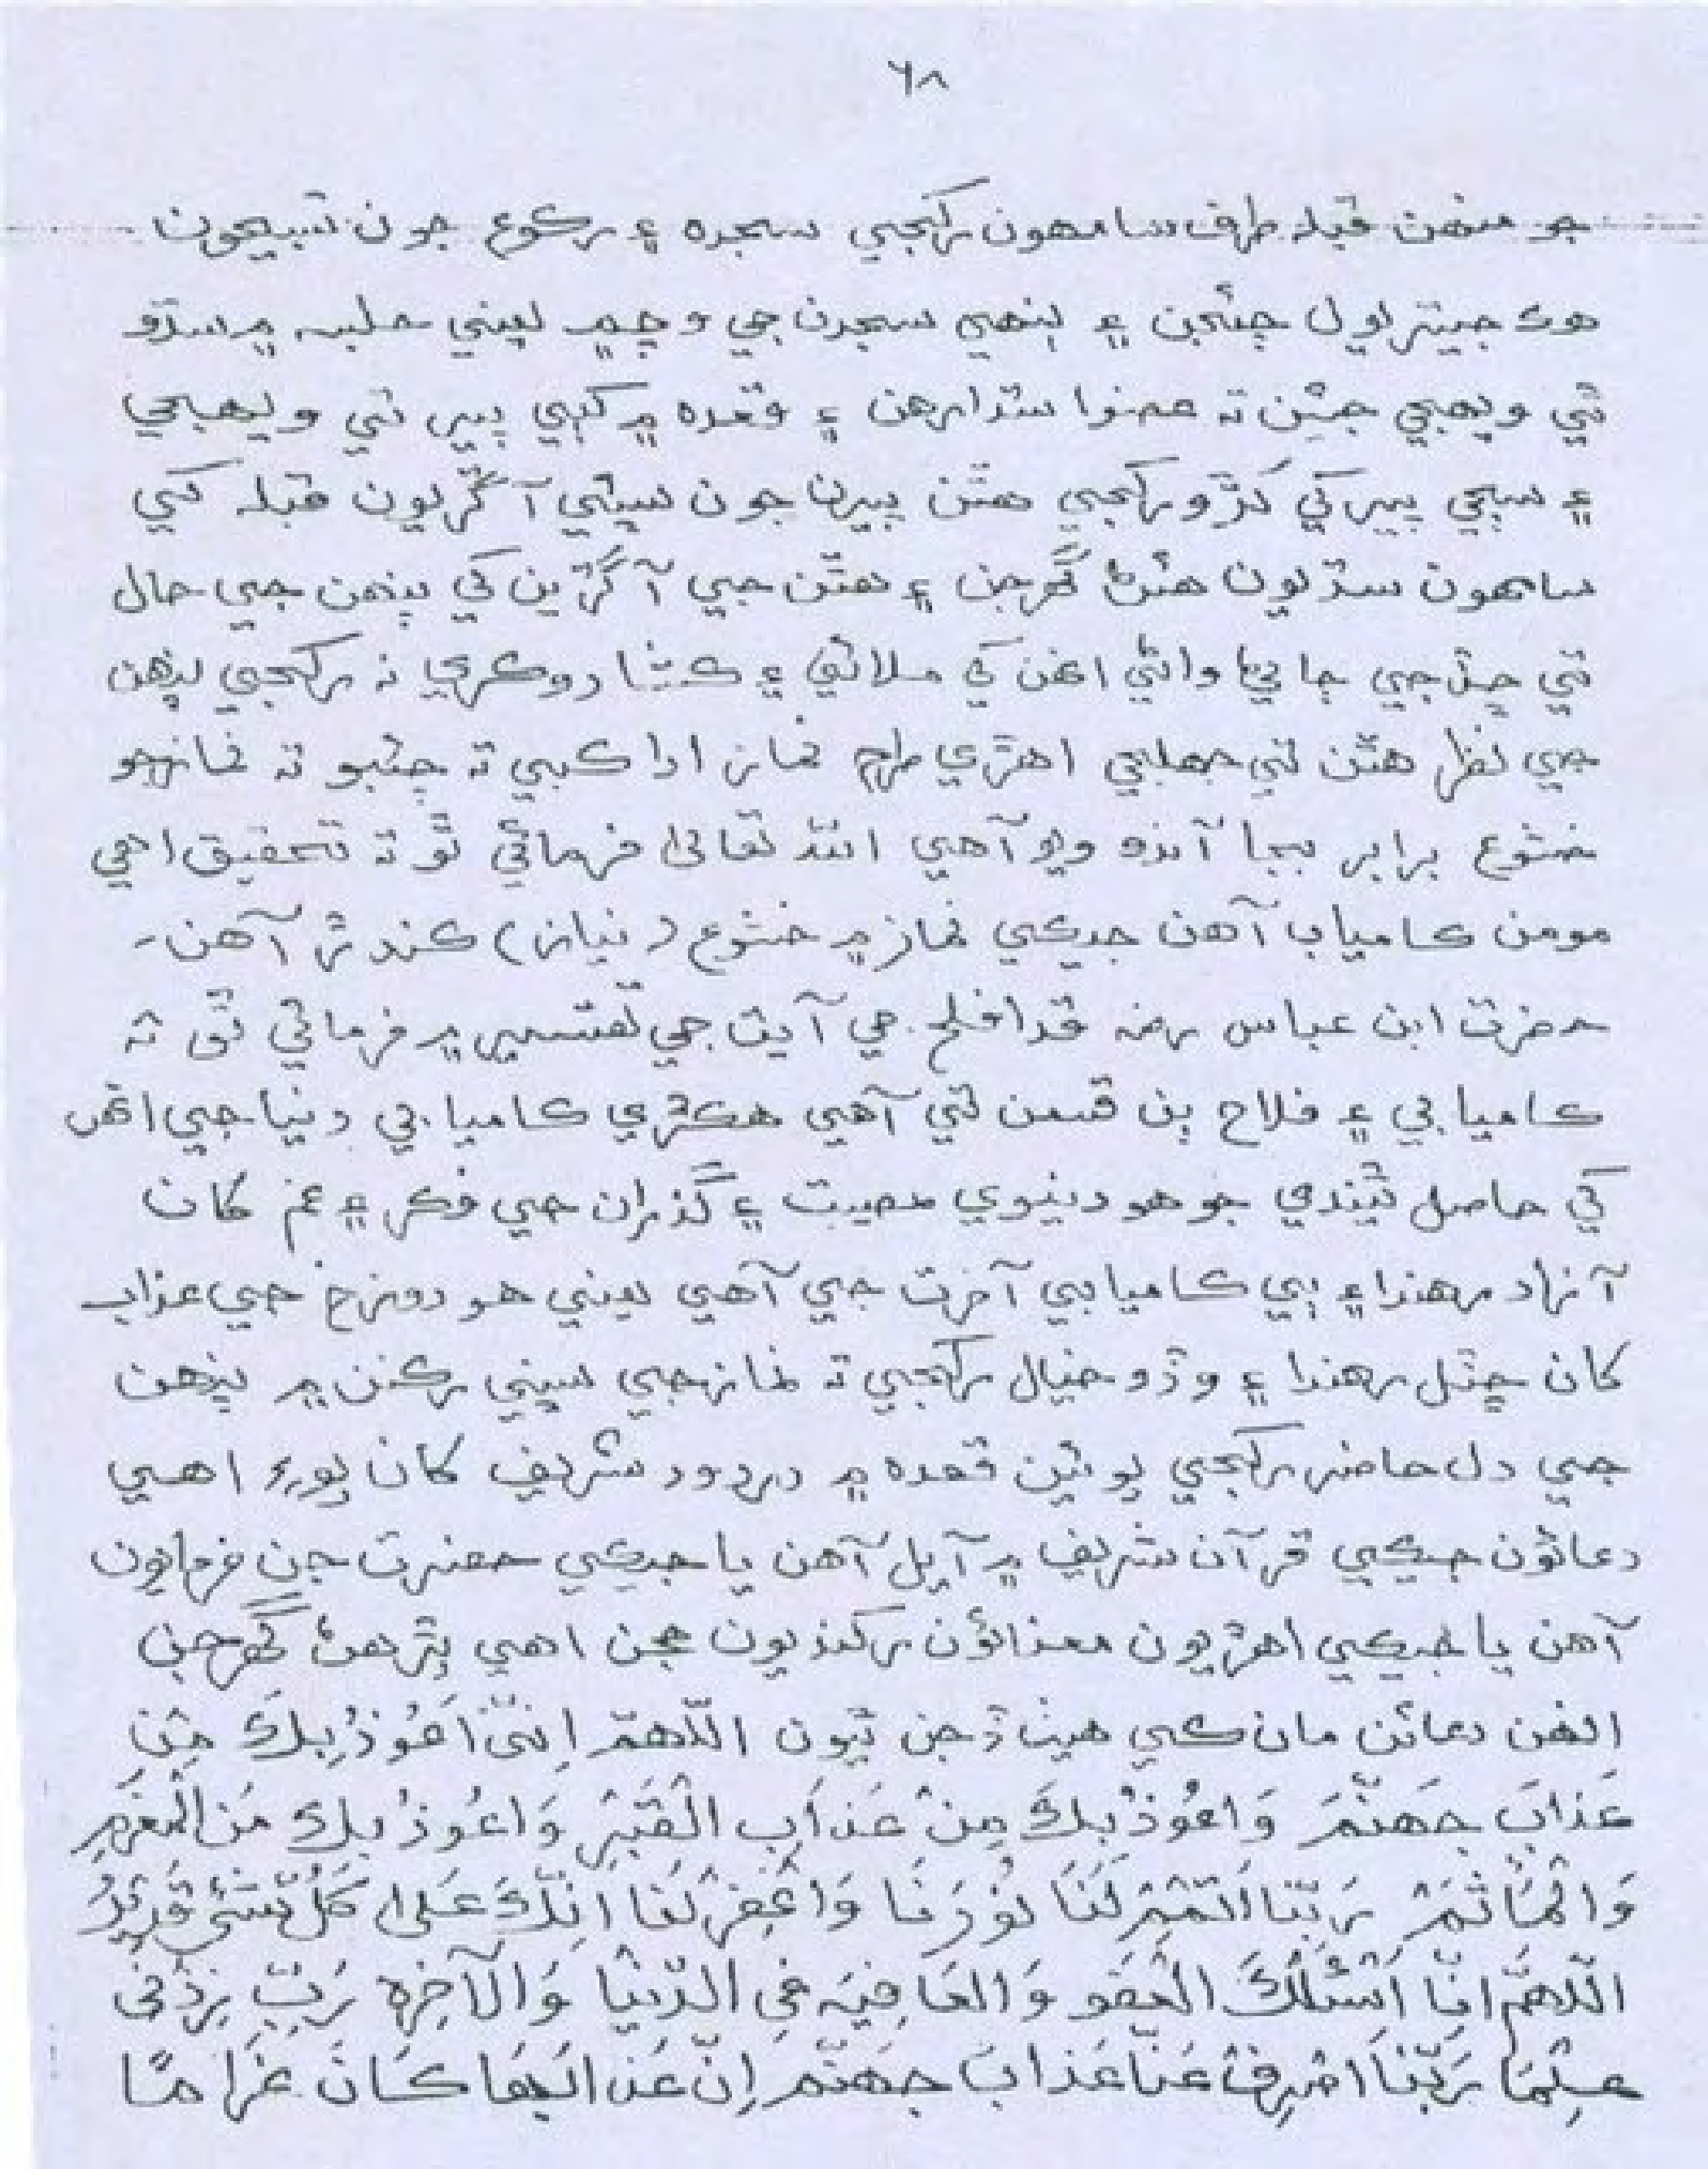 ٦٨
جو منهن قبله طرف سامهون رکجي سجده ۽ رکوع جون تسبيحون
هڪ جيتريون چئجن ۽ ٻنهي سجدن جي وچ ۾ يعني جلسہ ۾ سڌو
ٿي ويهجي جيئن ته عضوا سڌا رهن ۽ قعده ۾ کٻي پير تي ويهجي
۽ سڄي پير کي کڙو رکجي هٿن پيرن جون سڀئي آڱريون قبله کي
سامهون سڌيون هئڻ گهرجن ۽ هٿن جي آڱرين کي پنهن جي حال
تي ڇڏجي ڄاڻي واڻي انهن کي ملائي ۽ ڪشادو ڪري نہ رکجي پنهن
جي نظر هٿن تي جهلجي اهڙي طرح نماز ادا ڪبي تہ چئبو تہ نماز جو
خشوع برابر بجا آندو ويو آهي الله تعالىٰ فرمائي ٿو تہ تحقيق اهي
مومن ڪامياب آهن جيڪي نماز ۾ خشوع (نياز) ڪندڙ آهن۔
حضرت ابن عباس رضہ قد افلح جي آيت جي تفسير ۾ فرمائي ٿو تہ
ڪاميابي ۽ فلاح ٻن قسمن تي آهي هڪڙي ڪاميابي دنيا جي انهن
کي حاصل ٿيندي جو هو دنيوي مصيبت ۽ گذران جي فڪر ۽ غم کان
آزاد رهندا ۽ ٻي ڪاميابي آخرت جي آهي يعني هو دوزخ جي عذاب
کان ڇٽل رهندا ۽ وڏو خيال رکجي تہ نماز جي سڀني رڪنن ۾ پنهن
جي دل حاضر رکجي پوئين قعده ۾ درود شريف کان پوءِ اهي
دعائون جيڪي قرآن شريف ۾ آيل آهن يا جيڪي حضرت جن فرمايون
آهن يا جيڪي اهڙيون معنائون رکنديون هجن اهي پڙهڻ گهرجن
انهن دعائن مان ڪي هيٺ ڏجن ٿيون اللّٰهمّ اِنّیْ اَعُوْذُ بِكَ مِنْ
عَذَابَ جَهَنَّمَ وَاعُوْذُ بِكَ مِنْ عَذَابِ الْقَبْرِ وَاعُوْذُ بِكَ مَنَ الْمَغْرَمِ
وَالْمَأْثَمْ رَبَّنَا اَتْمِمْ لَنَا نُوْرَنَا وَاغْفِرْ لَنَا اِنَّكَ عَلىٰ كُلِّ شَیْءٍ قَدِيْرٌ
اللّٰهمَّ اِنَّا اَسْئَلُكَ الْعَفْوَ وَالْعَافِيَہ فِی الدُّنْيَا وَالْآخِرِه رَبِّ زِدْنِی
عِلْمًا رَبَّنَا اصْرِفْ عَنَّا عَذَابَ جَهَنَّمَ اِنَّ عَذَابَهَا كَانَ غَرَامًا